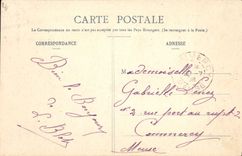 CARTE POSTALE
La Correspondance au recto n'est pas acceptée par tous les Pays Etrangers. (Se renseigner à la Poste.)
CORRESPONDANCE
ADRESSE
Bien le Bonjour
de
Mademoiselle
Gabrielle
2 rue port au
Commercy
Meuse